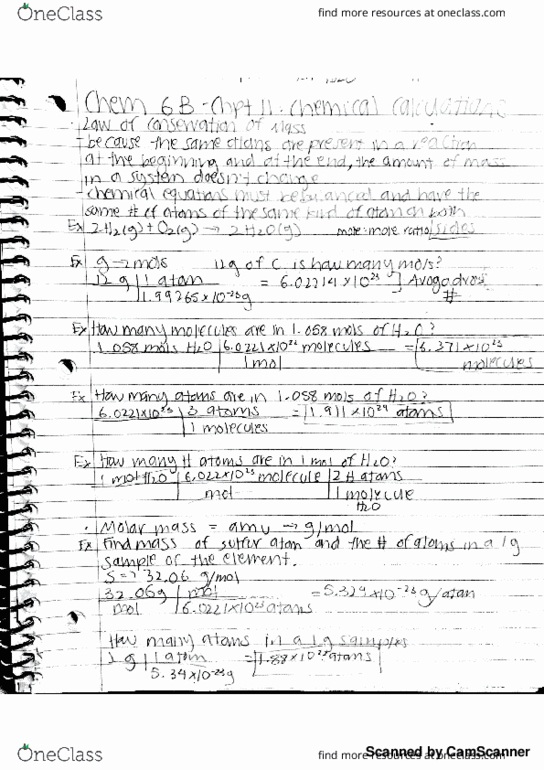 OneClass
find more resources at oneclass.com
Chem 6B - Chpt 11. Chemical Calculations
· Law of Conservation of Mass
- because the same atoms are present in a reaction
at the beginning and at the end, the amount of mass
in a system doesn't change
- chemical equations must be balanced and have the
same # of atoms of the same kind of atom on both
sides
Ex 2H₂(g) + O₂(g) → 2H₂O(g) mole-mole ratio
Ex g → mols 12g of C is how many mols?
12 g | 1 atom = 6.02214 × 10²³ ] Avogodros
1.99265×10⁻²³g #
Ex How many molecules are in 1.058 mols of H₂O?
1.058 mols H₂O | 6.0221×10²³ molecules = 6.371×10²³
1 mol molecules
Ex How many atoms are in 1.058 mols of H₂O?
6.0221×10²³ | 3 atoms = 1.911×10²⁴ atoms
1 molecules
Ex How many H atoms are in 1 mol of H₂O?
1 mol H₂O | 6.022×10²³ molecule | 2 H atoms
mol 1 molecule
H₂O
· Molar mass = amu → g/mol
Ex Find mass of sulfur atom and the # of atoms in a 1g
sample of the element.
S = 32.06 g/mol
32.06g | mol = 5.324×10⁻²³ g/atom
mol | 6.0221×10²³ atoms
How many atoms in a 1g sample
1 g | 1 atom = 1.88×10²² atoms
5.34×10⁻²³g
OneClass
find more resources at oneclass.com
Scanned by CamScanner